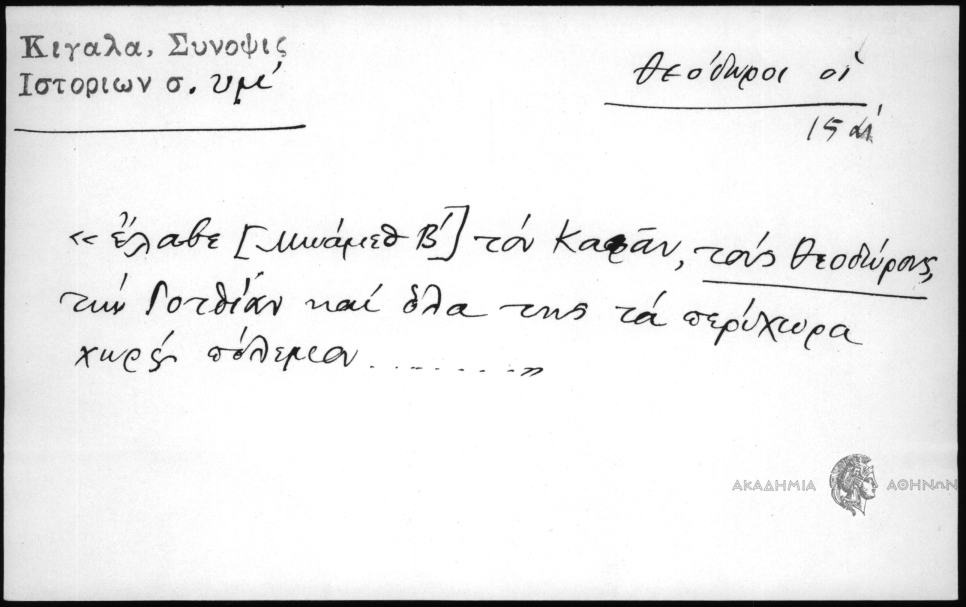 Κιγαλα, Συνοψις
Ιστοριων σ. υμέ
Θεόδωροι οἱ
15 αἰ
«ἔλαβε [Μωάμεθ Β'] τόν Καφᾶν, τούς Θεοδώρους,
τήν Γοτθίαν καί ὅλα της τά περίχωρα
χωρίς πόλεμον ........»
ΑΚΑΔΗΜΙΑ ΑΘΗΝΩΝ